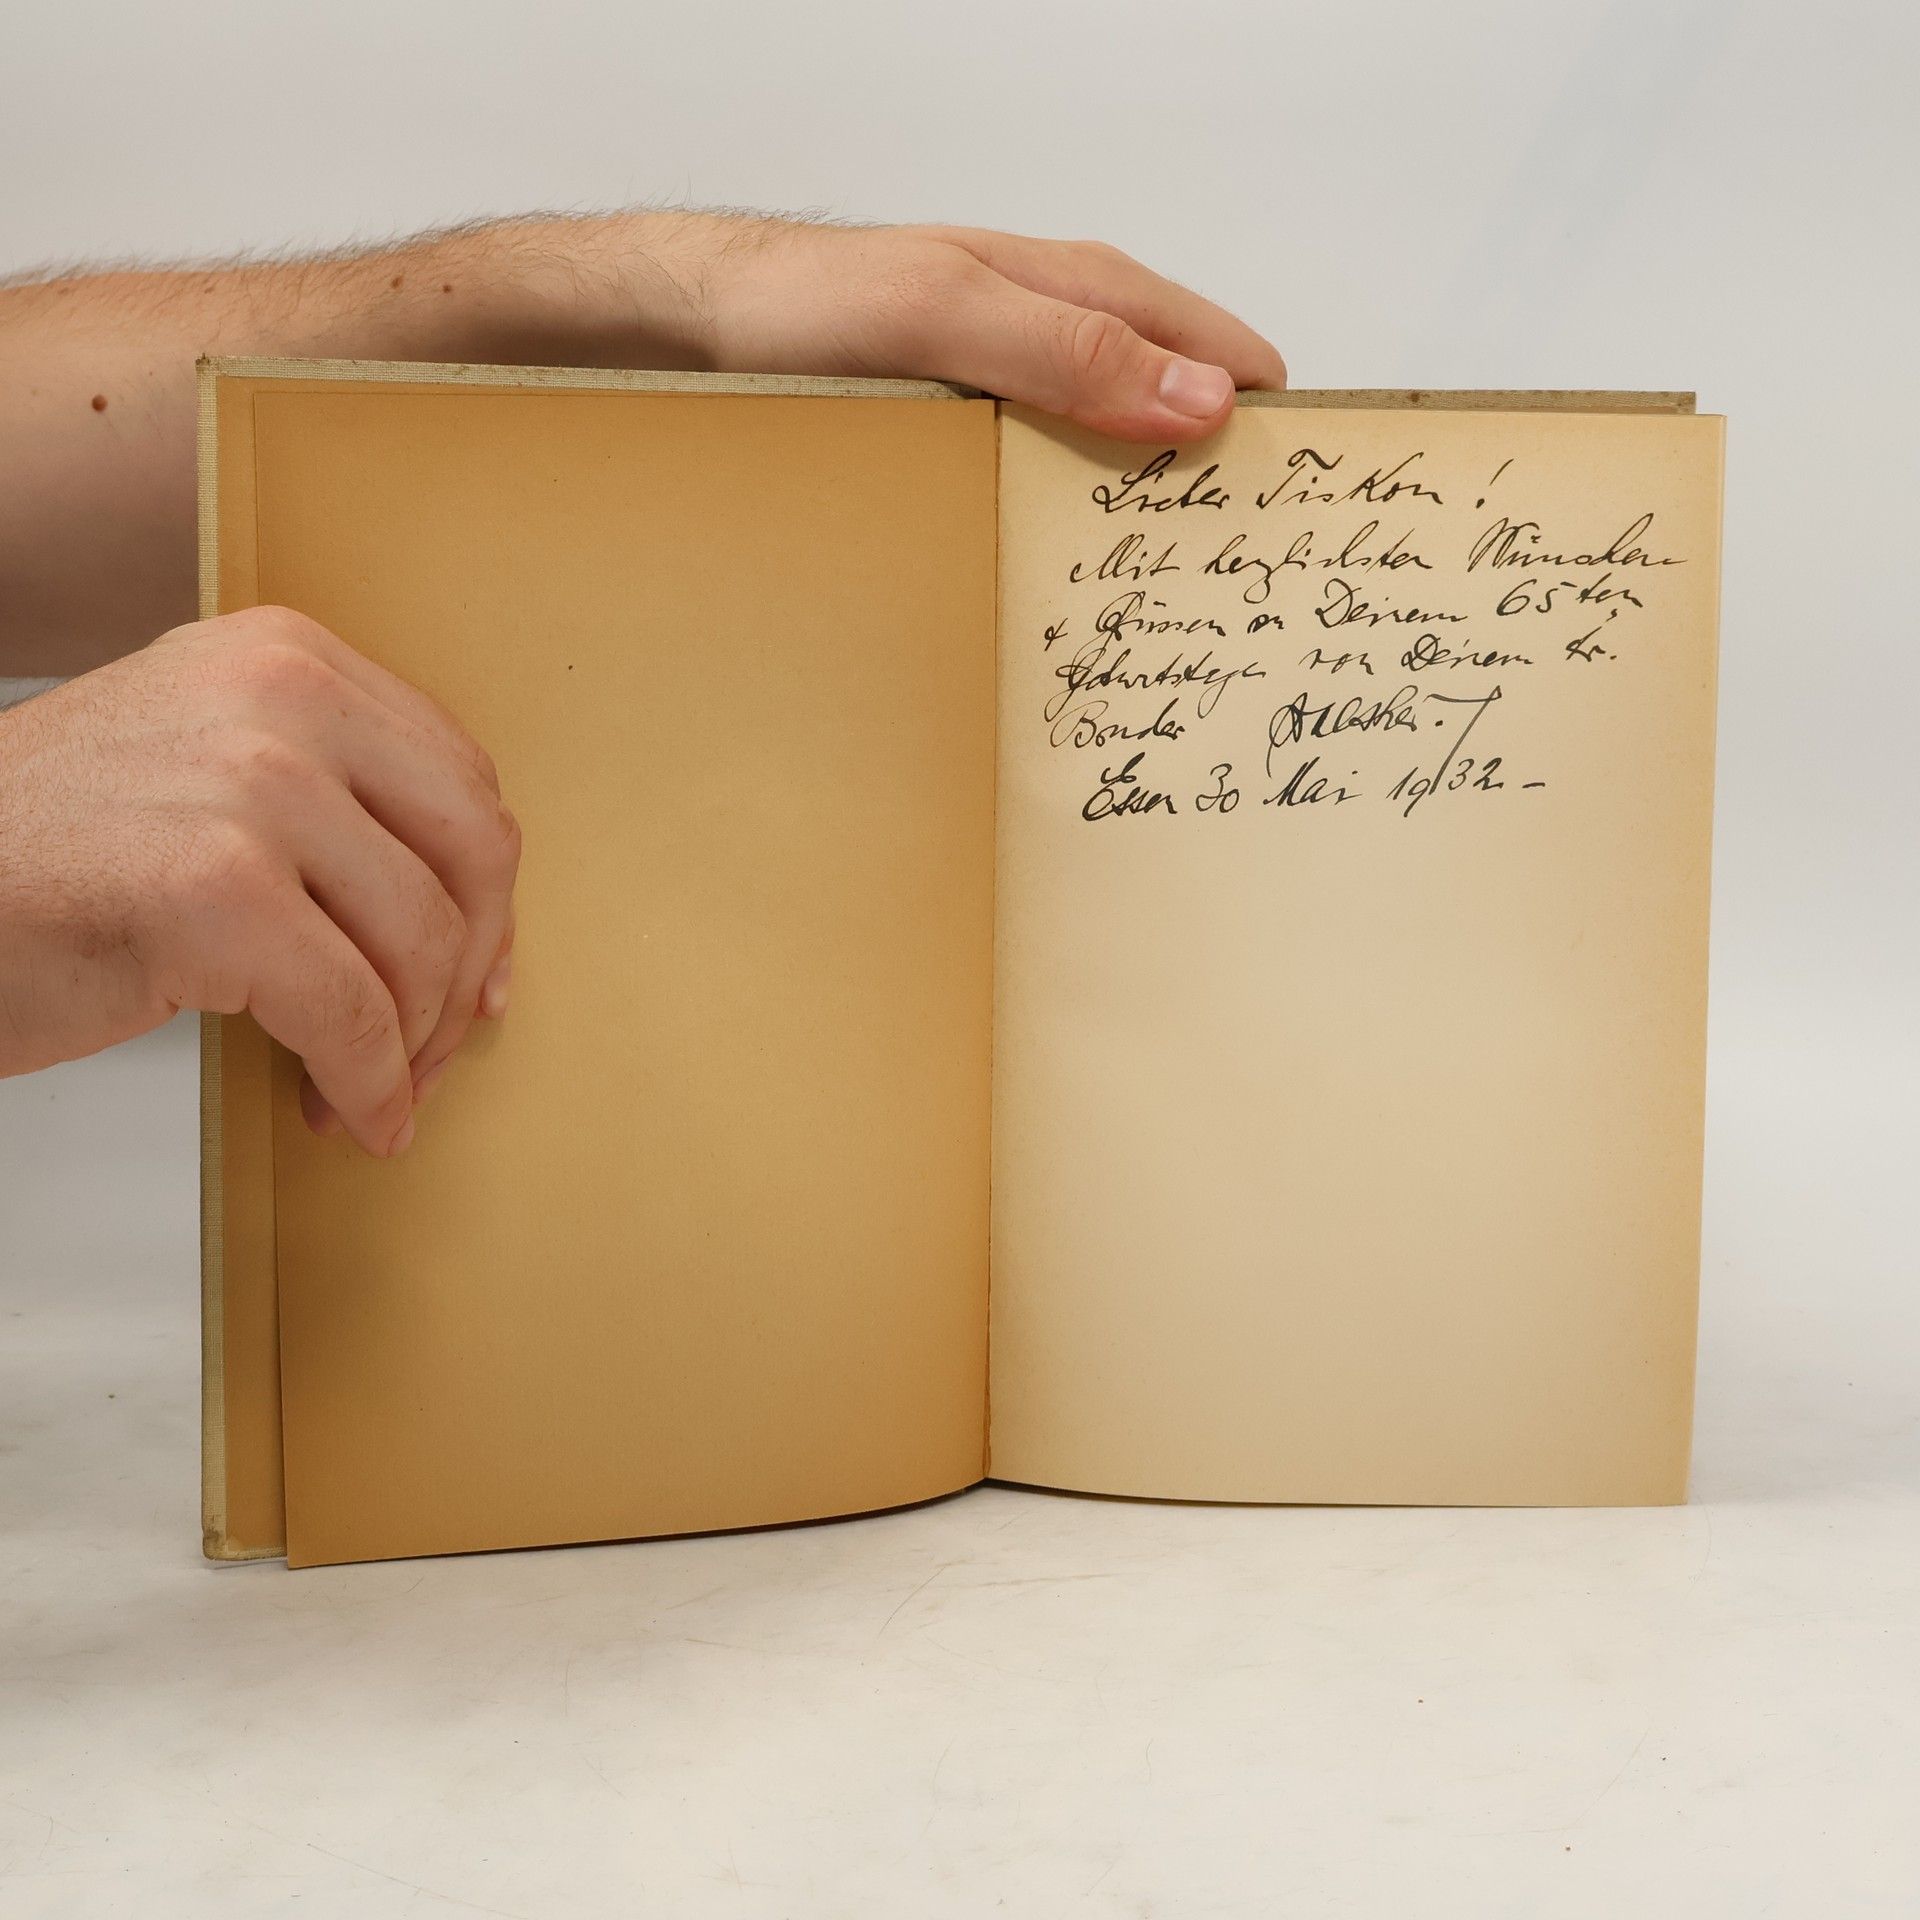 Lieber Tiskon!
Mit herzlichsten Wünschen
& Grüssen zu Deinem 65ten
Geburtstage von Deinem tr.
Bruder
Essen 30 Mai 1932 –